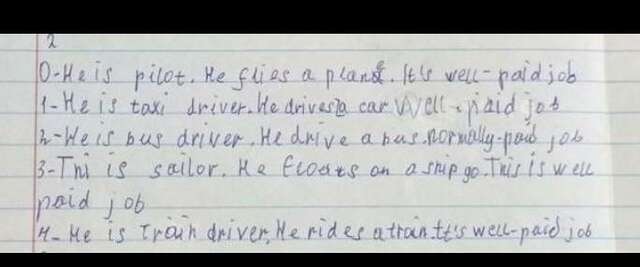 2
0-He is pilot. He flies a plane. It's well-paid job
1-He is taxi driver. He drives a car Well-paid job
2-He is bus driver. He drive a bus. normally-paid job
3-Thi is sailor. He floats on a ship go. This is well
paid job
4- He is train driver, He rides a train. It's well-paid job